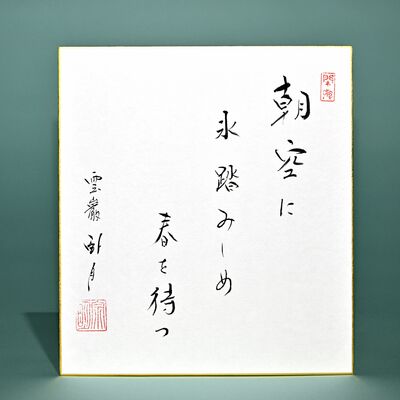 朝空に
氷踏みしめ
春を待つ
雲巌 卧月